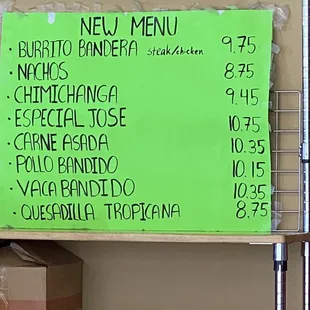 NEW MENU
· BURRITO BANDERA steak/chicken 9.75
· NACHOS 8.75
· CHIMICHANGA 9.45
· ESPECIAL JOSE 10.75
· CARNE ASADA 10.35
· POLLO BANDIDO 10.15
· VACA BANDIDO 10.35
· QUESADILLA TROPICANA 8.75